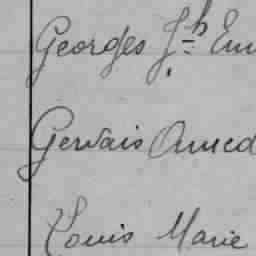 Georges Jh Em
Gervais Amed
Louis Marie